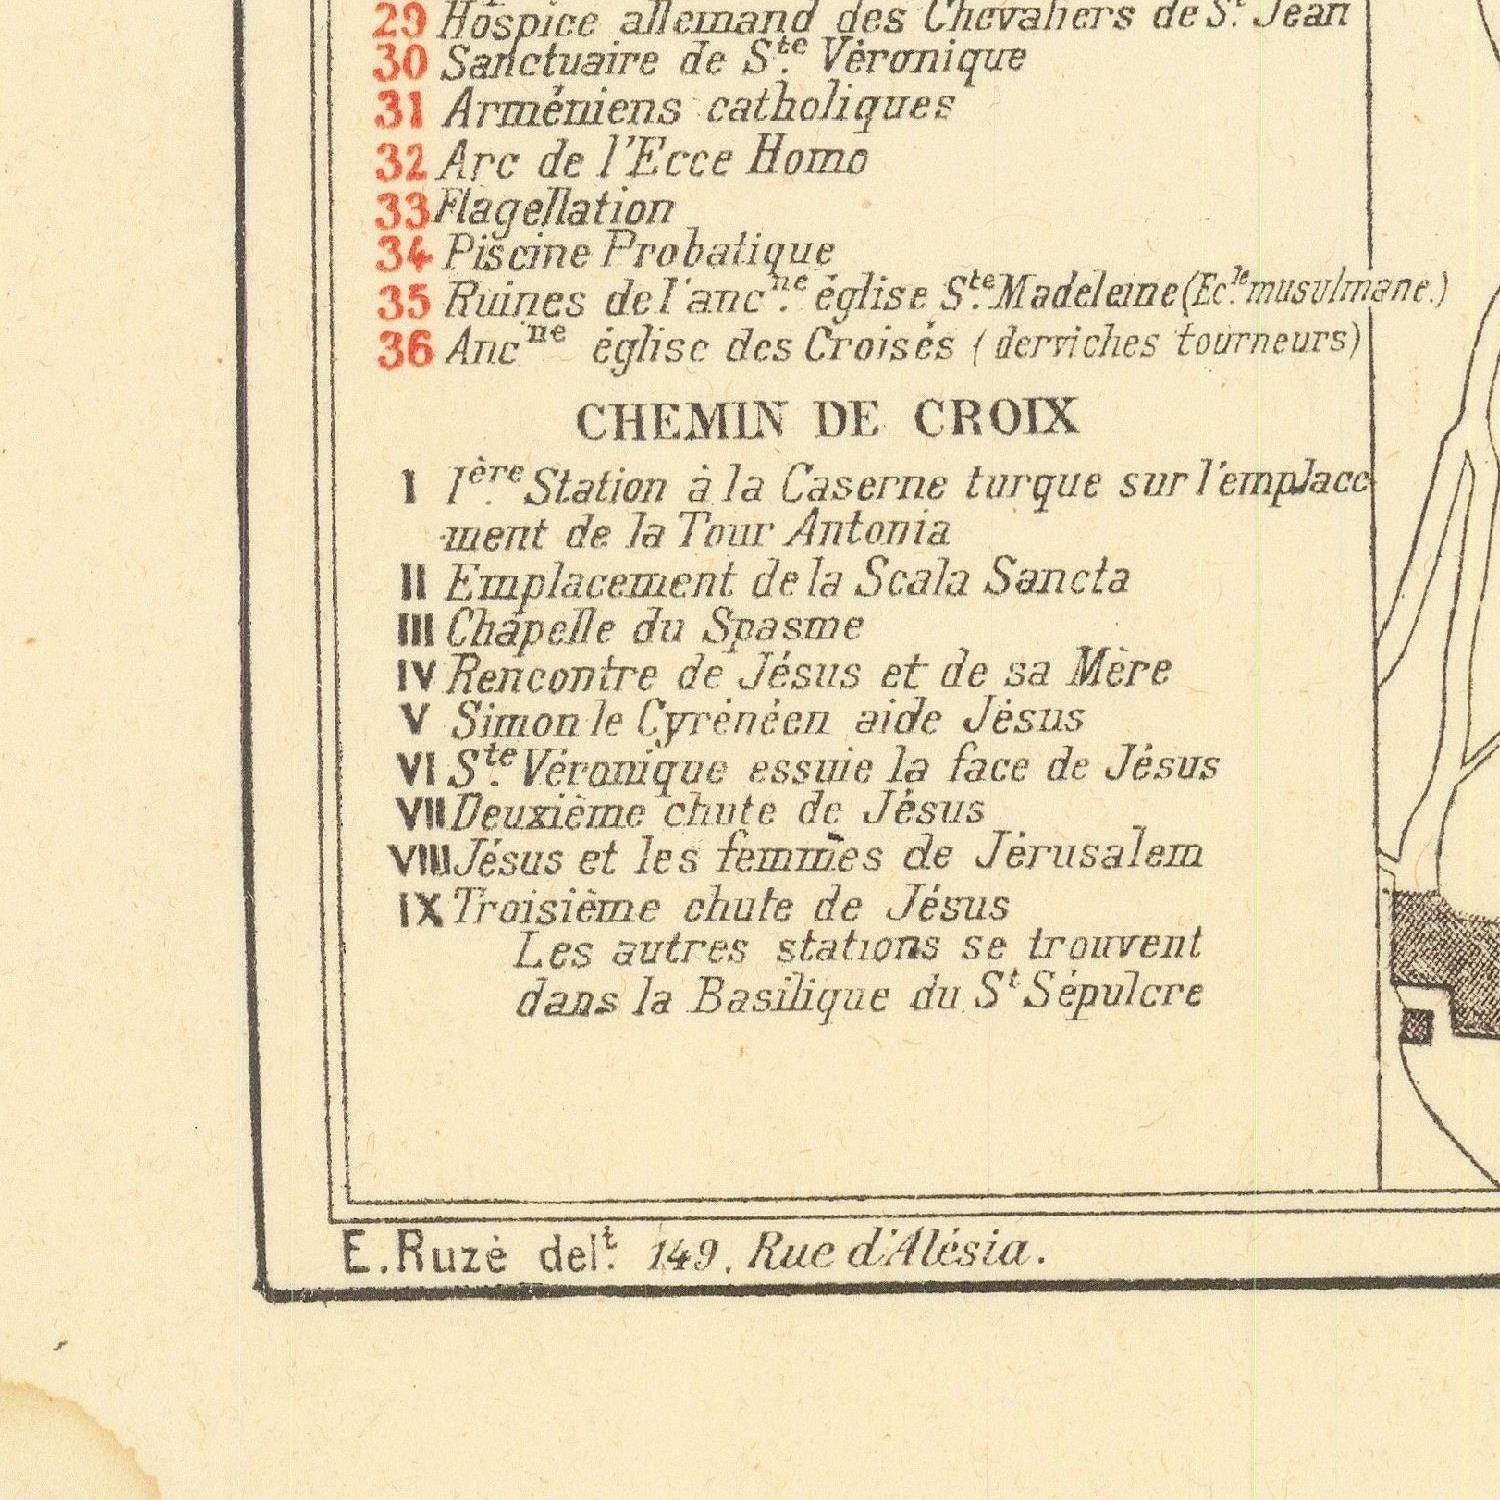 29 Hospice allemand des Chevaliers de St. Jean
30 Sanctuaire de Ste. Véronique
31 Arméniens catholiques
32 Arc de l'Ecce Homo
33 Flagellation
34 Piscine Probatique
35 Ruines de l'ancne. église Ste. Madeleine (Ecle. musulmane.)
36 Ancne église des Croisés (derviches tourneurs)
CHEMIN DE CROIX
I 1ère. Station à la Caserne turque sur l'emplace
-ment de la Tour Antonia
II Emplacement de la Scala Sancta
III Chapelle du Spasme
IV Rencontre de Jésus et de sa Mère
V Simon le Cyrénéen aide Jésus
VI Ste. Véronique essuie la face de Jésus
VII Deuxième chute de Jésus
VIII Jésus et les femmes de Jérusalem
IX Troisième chute de Jésus
Les autres stations se trouvent
dans la Basilique du St Sépulcre
E. Ruzé delt. 149, Rue d'Alésia.